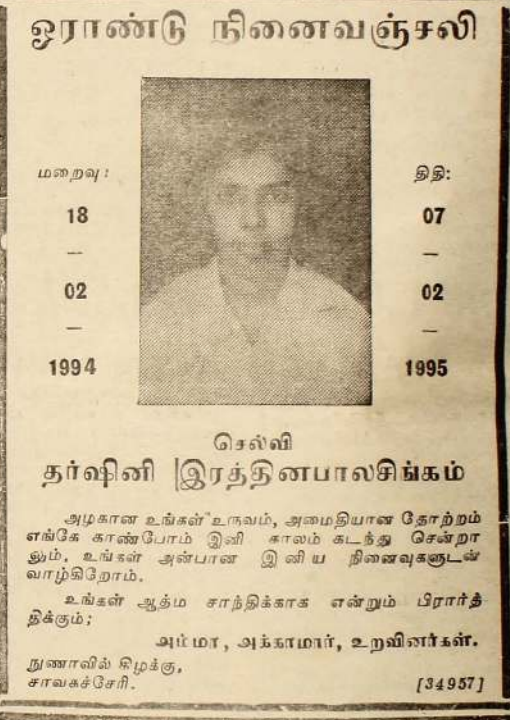 ஓராண்டு நினைவஞ்சலி
மறைவு:
18
—
02
—
1994
திதி:
07
—
02
—
1995
செல்வி
தர்ஷினி இரத்தினபாலசிங்கம்
அழகான உங்கள் உருவம், அமைதியான தோற்றம்
எங்கே காண்போம் இனி காலம் கடந்து சென்றா
லும், உங்கள் அன்பான இனிய நினைவுகளுடன்
வாழ்கிறோம்.
உங்கள் ஆத்ம சாந்திக்காக என்றும் பிரார்த்
திக்கும்;
அம்மா, அக்காமார், உறவினர்கள்.
நுணாவில் கிழக்கு,
சாவகச்சேரி.
[34957]